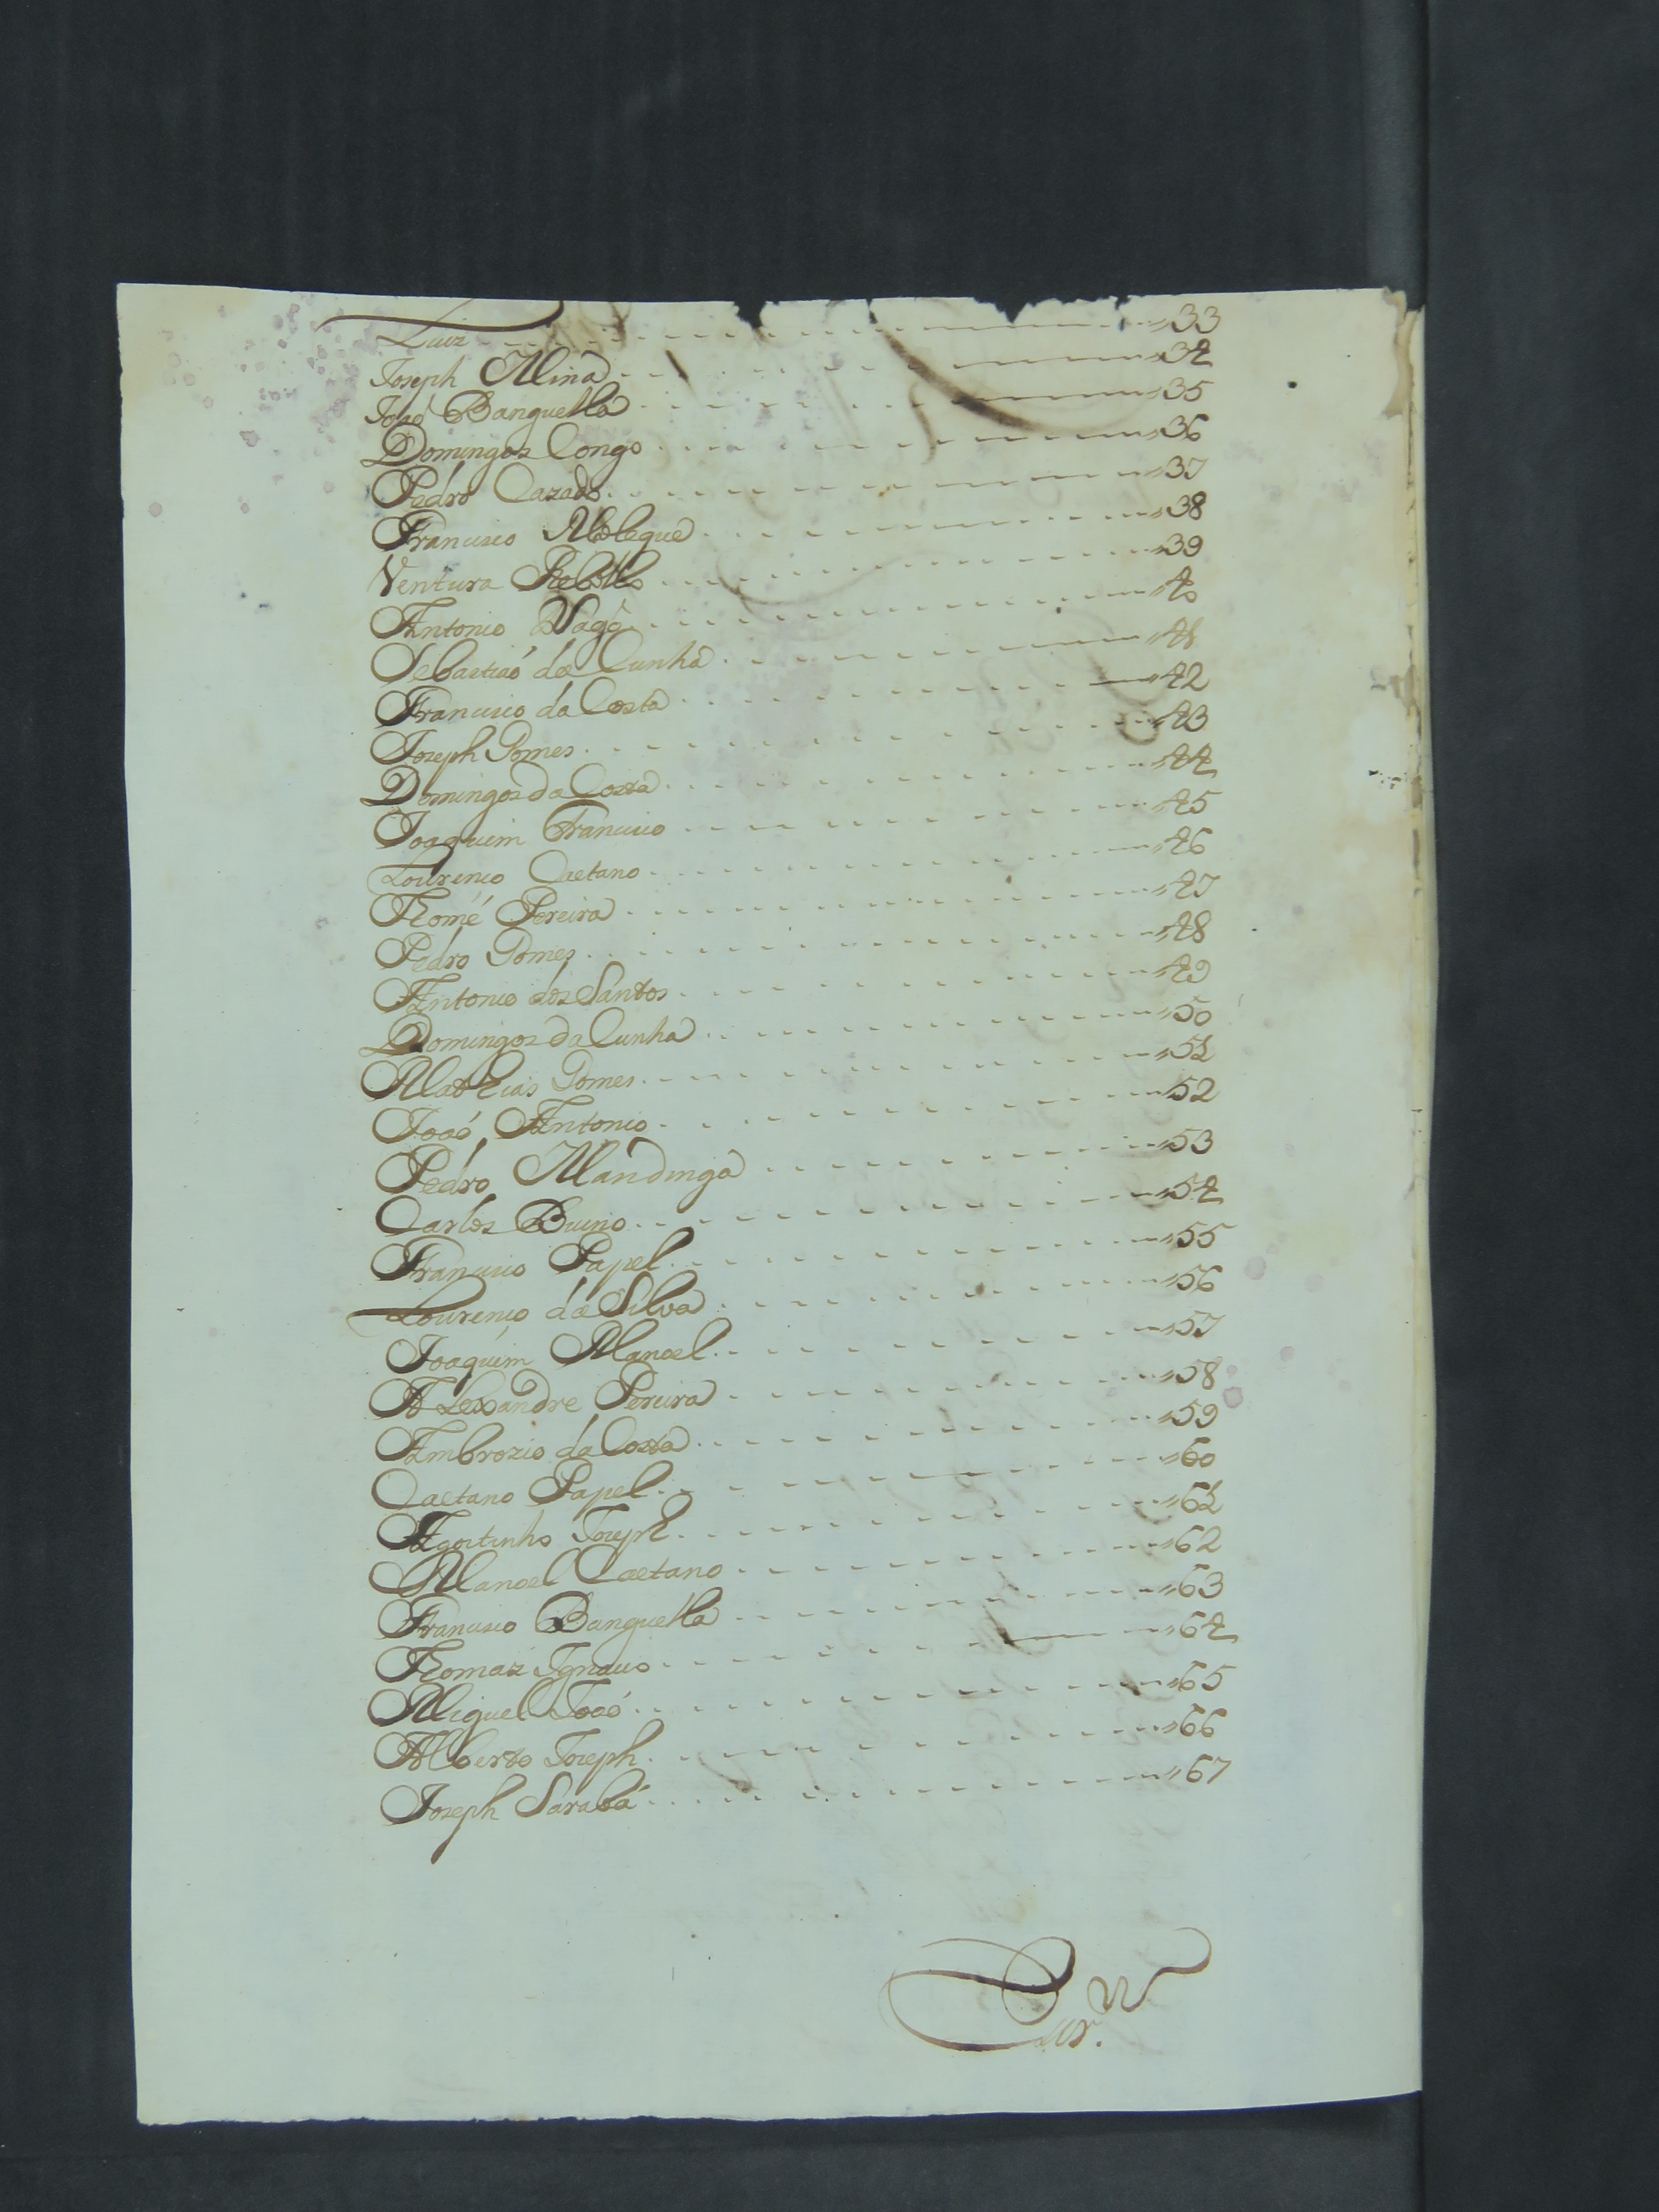 Luiz 33
Joseph Mina 34
João Banguella 35
Domingos Congo 36
Pedro Cazado 37
Francisco Moleque 38
Ventura Rebollo 39
Antonio Nagô 40
Sebastiaó da Cunha 41
Francisco da Costa 42
Joseph Gomes 43
Domingos da Costa 44
Joaquim Francisco 45
Lourenço Caetano 46
Thomé Pereira 47
Pedro Gomes 48
Antonio dos Santos 49
Domingos da Cunha 50
Mathias Gomes 51
Joaó Antonio 52
Pedro Mandinga 53
Carlos Bueno 54
Francisco Papel 55
Lourenço da Silva 56
Joaquim Manoel 57
Alexandre Pereira 58
Ambrozio da Costa 59
Caetano Papel 60
Agostinho Joseph 61
Manoel Caetano 62
Francisco Banguella 63
Thomaz Ignacio 64
Miguel Joaó 65
Alberto Joseph 66
Joseph Sarabá 67